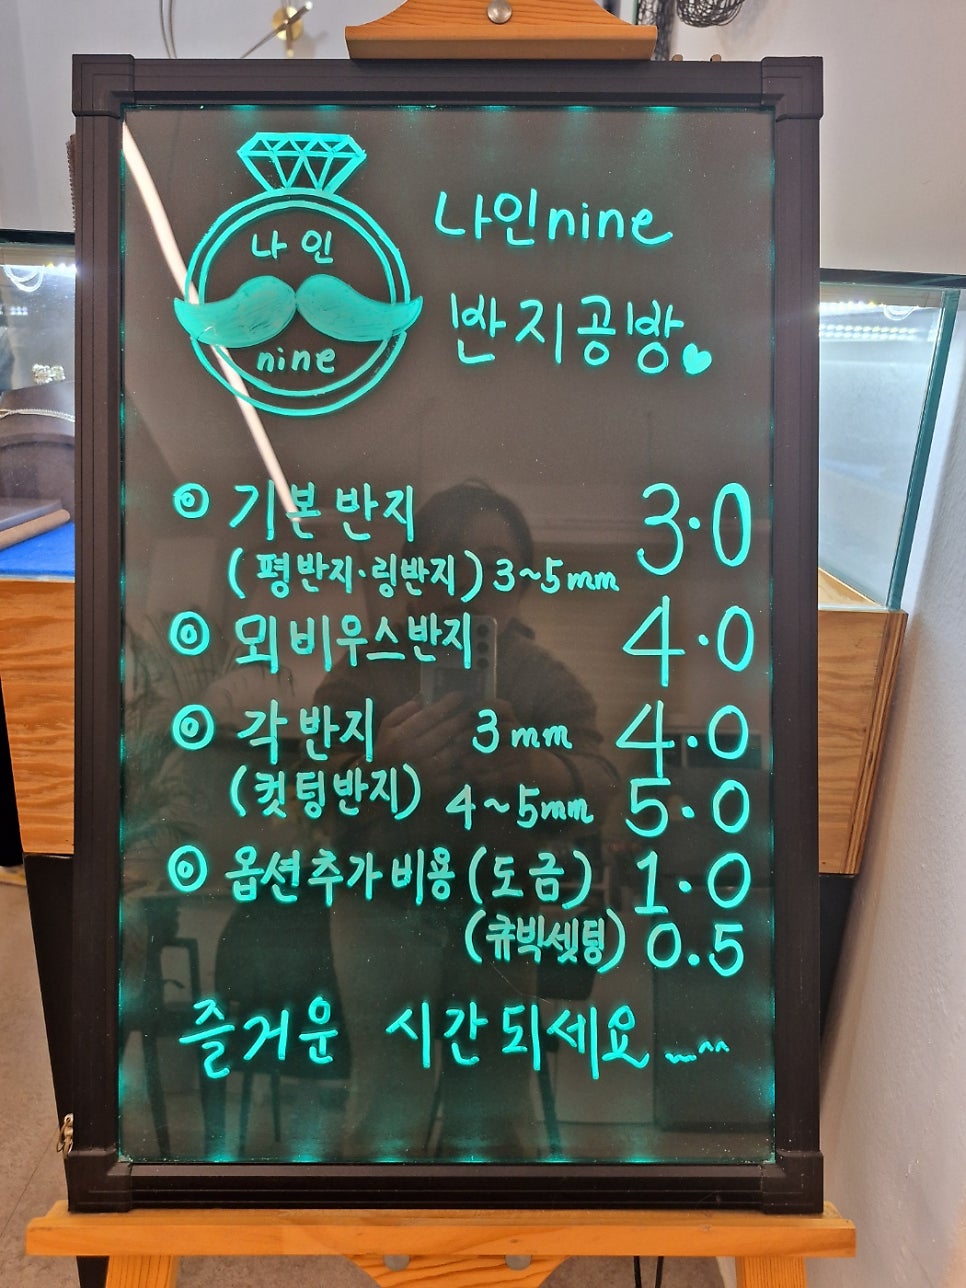 나인
nine
나인nine
반지공방
기본반지 3.0
(평반지·링반지) 3~5mm
뫼비우스반지 4.0
각반지 3mm 4.0
(컷팅반지) 4~5mm 5.0
옵션추가비용 (도금) 1.0
(큐빅셋팅) 0.5
즐거운 시간되세요...^^